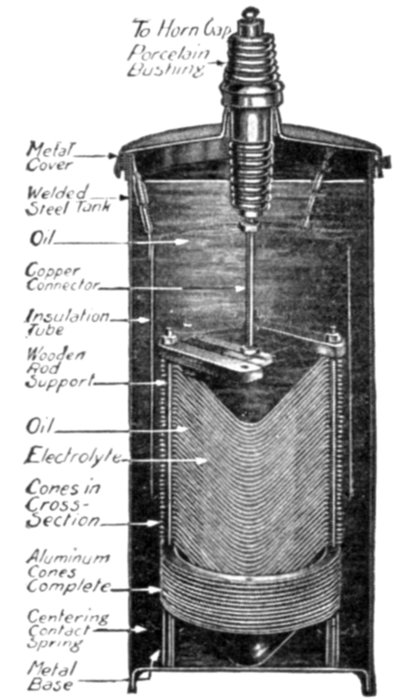 To Horn Gap
Porcelain
Bushing
Metal
Cover
Welded
Steel Tank
Oil
Copper
Connector
Insulation
Tube
Wooden
Rod
Support
Oil
Electrolyte
Cones in
Cross-
Section
Aluminum
Cones
Complete
Centering
Contact
Spring
Metal
Base